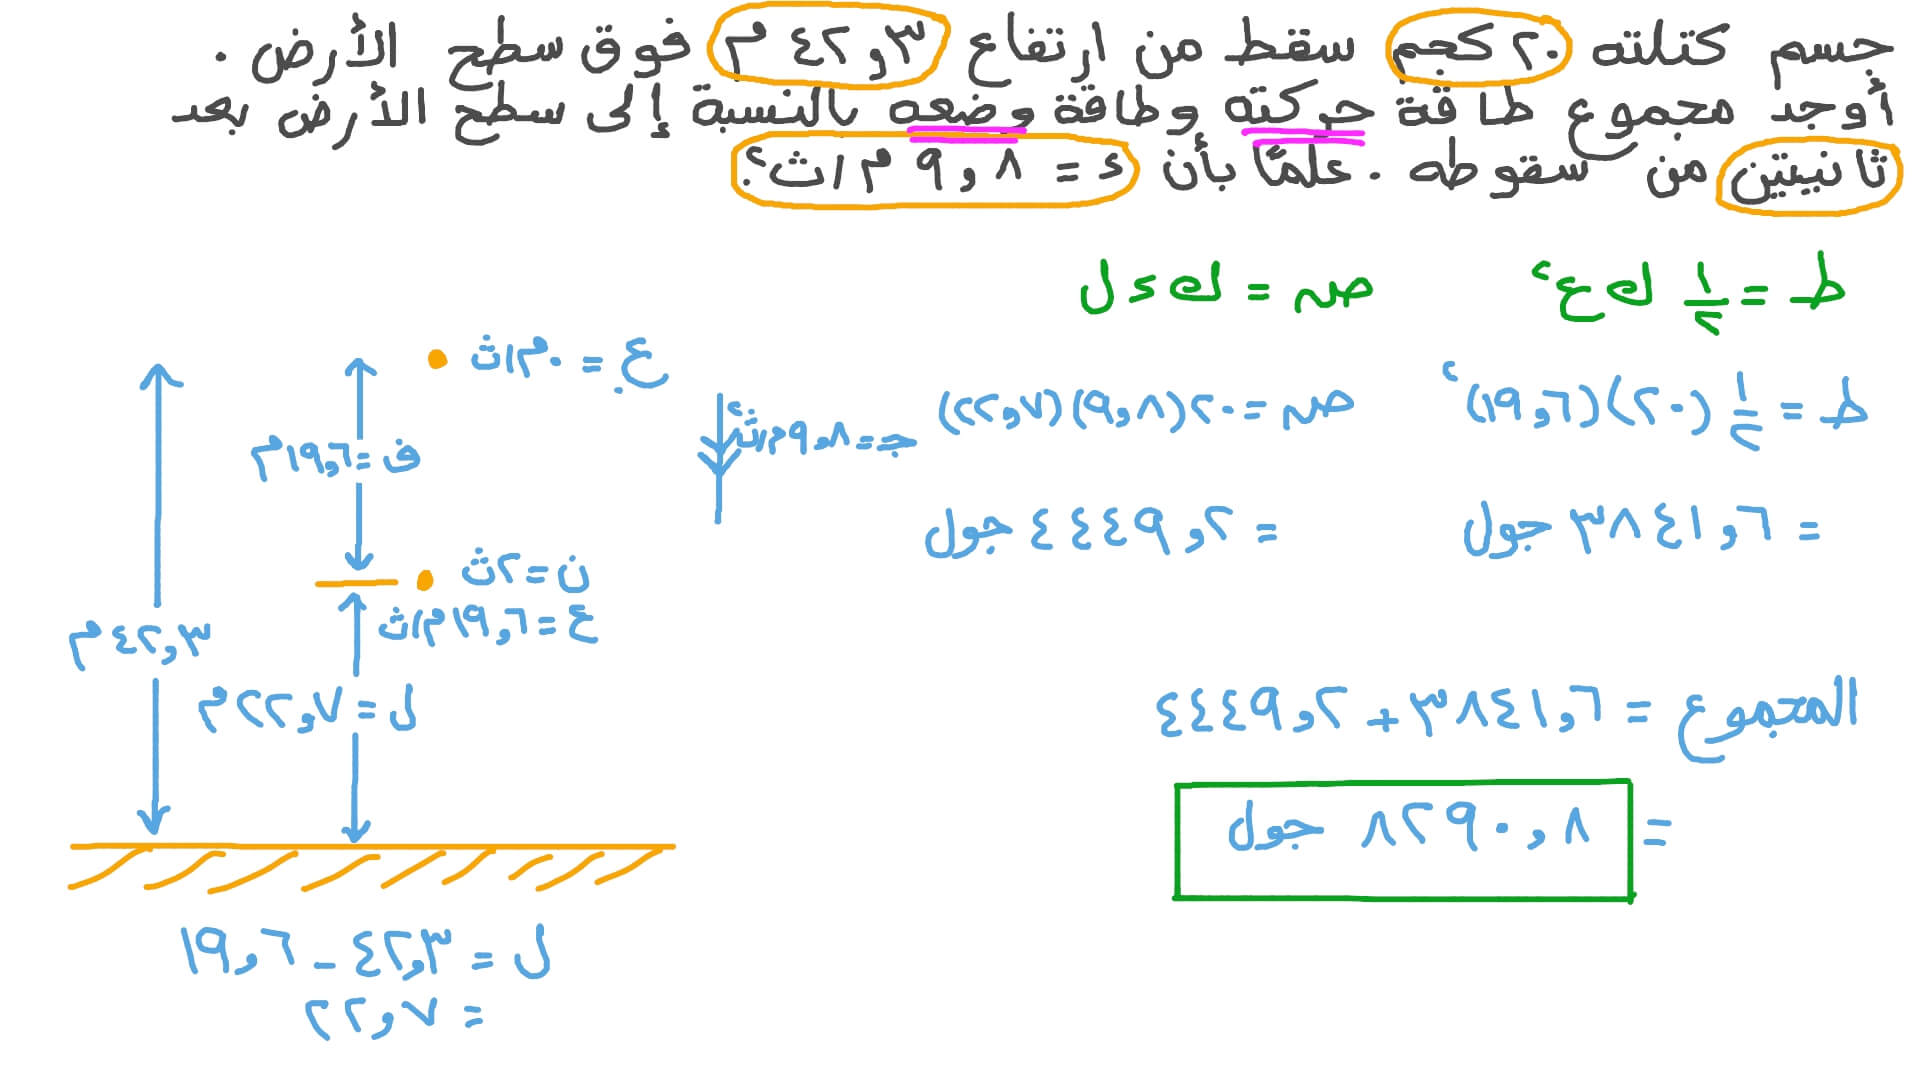 جسم كتلته ٢٠ كجم سقط من ارتفاع ٤٢٫٣ م فوق سطح الأرض .
أوجد مجموع طاقة حركته وطاقة وضعه بالنسبة إلى سطح الأرض بعد
ثانيتين من سقوطه . علمًا بأن ء = ٩٫٨ م/ث٢.
ط = ١/٢ ك ع٢
ص = ك ء ل
ع. = ٠ م/ث
ف = ١٩٫٦ م
جـ = ٩٫٨ م/ث٢
ط = ١/٢ (٢٠)(١٩٫٦)٢
ص = ٢٠(٩٫٨)(٢٢٫٧)
= ٣٨٤١٫٦ جول
= ٤٤٤٩٫٢ جول
ن = ٢ ث
ع = ١٩٫٦ م/ث
٤٢٫٣ م
ل = ٢٢٫٧ م
المجموع = ٣٨٤١٫٦ + ٤٤٤٩٫٢
= ٨٢٩٠٫٨ جول
ل = ٤٢٫٣ - ١٩٫٦
= ٢٢٫٧